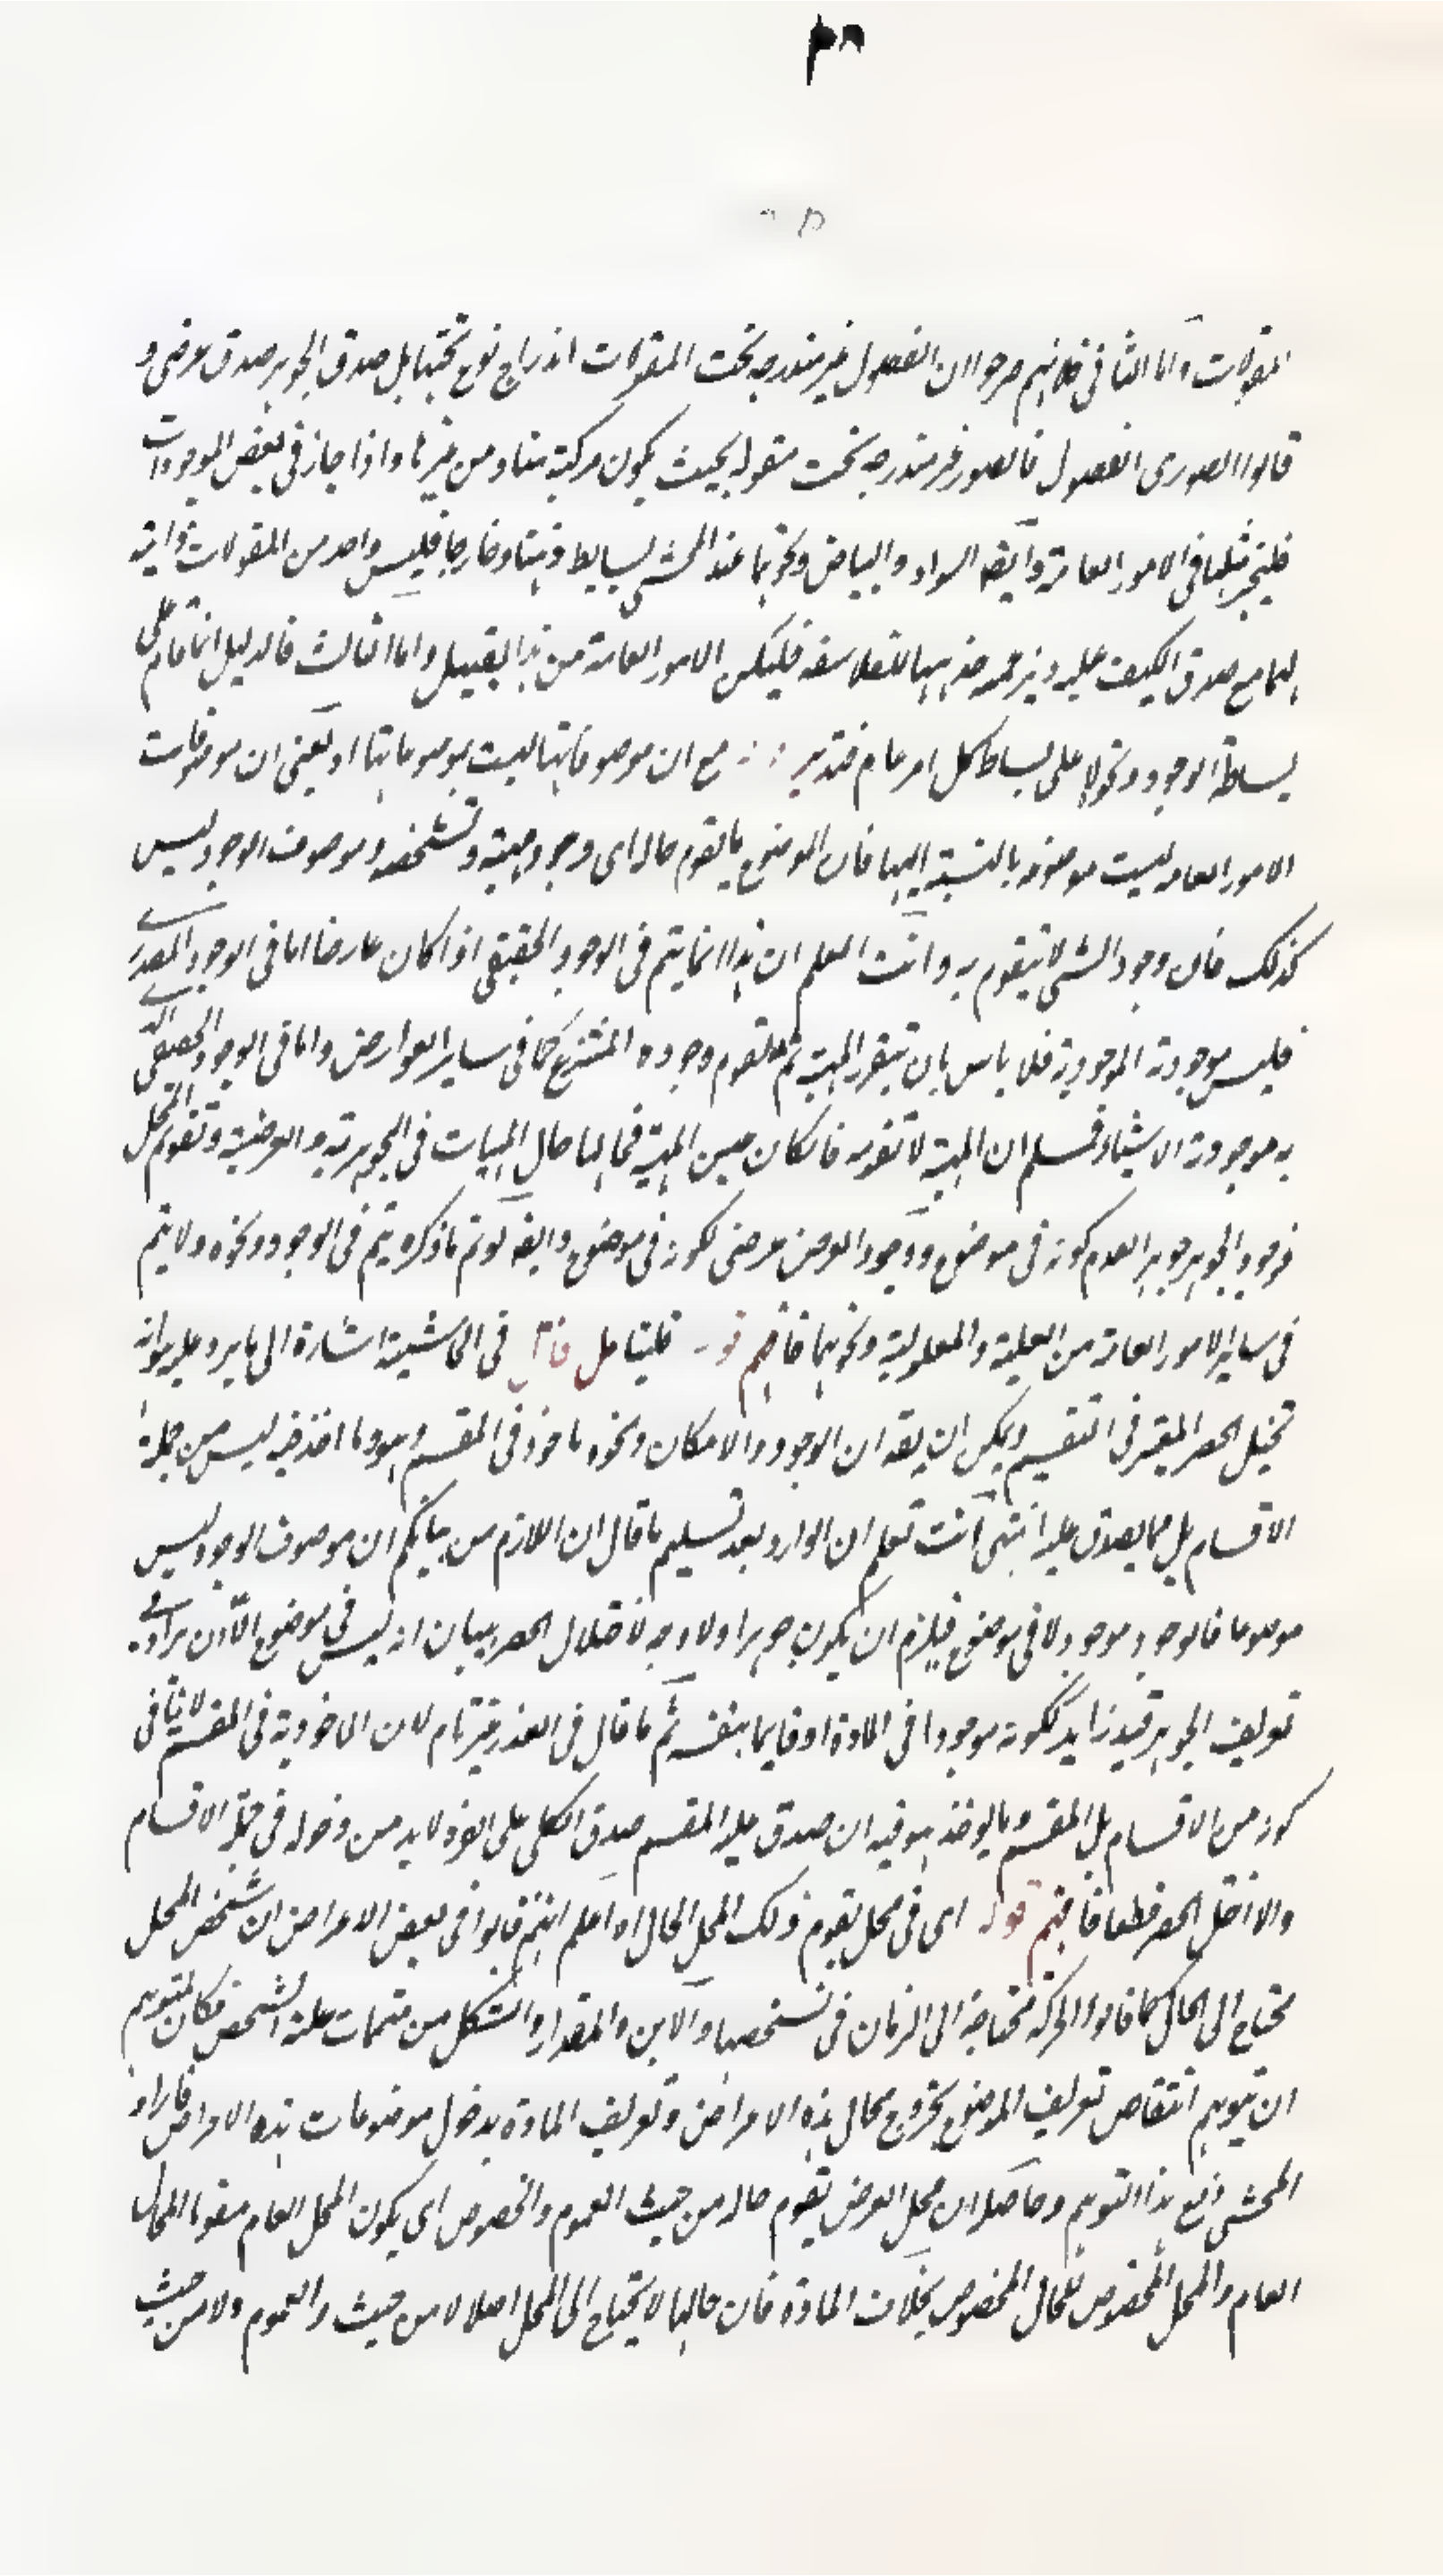 المقولات واما الثانى فلانهم صرحوا ان الفصول غير مندرجه تحت المقولات اندراج نوع تحتها بل صدق الجوهر صدق عرضى و
قالوا الصورى الفصول فالصور غير مندرجه تحت مقوله بحيث يكون مركبة منها ومن غيرها واذا جاز فى بعض الموجودات
فليجز مثلها فى الامور العامة وايضه السواد والبياض ونحوهما عند المحشى بسايط ذهنا وخارجا فليس واحد من المقولات ذاتية
لهما مع صدق الكيف عليه ويزعمه مذهبا للفلاسفه فليكن الامور العامة من هذا القبيل واما الثالث فالدليل انما قام على
بساطة الوجود ونحوه لا على بساط كل امر عام فتدبر مع ان موصوفاتها ليست بموضوعاتها او يعنى ان موصوفات
الامور العامه ليست موضوعه بالنسبة اليها فان الموضوع ما يقوم حاله اى وجود مهيته وتشخصه وموصوف الوجود ليس
كذلك فان وجود الشى لا يتقوم به وانت العلم ان هذا انما يتم فى الوجود الحقيقى اذا كان عارضا اما فى الوجود المصدرى
فليس موجودة الموجودية فلا باس بان يتقرر المهية ثم تقوم وجوده المنتزع كما فى ساير العوارض واما فى الوجود الحقيقى الذى
به موجودة الاشياء فمسلم ان المهية لا تقومه فان كان عين المهية فحالها حال المهيات فى الجوهرية والعرضية وتقويم المحل
فوجود الجوهر جوهر لعدم كونه فى موضوع ووجود العرض عرضى لكونه فى موضوع وايضه لو تم ما ذكره يتم فى الوجود ونحوه ولا يتم
فى ساير الامور العامة من العلية والمعلولية ونحوهما فافهم قوله فليتامل فى الحاشية اشارة الى ما يرد عليه من انه
تخيل الحصر المعتبر فى التقسيم ويمكن ان يقه ان الوجود والامكان ونحوه ماخوذ فى المقسم وهو ما اخذ فيه ليس من جملة
الاقسام بل مما يصدق عليه انتهى انت تعلم ان الوارد بعد تسليم ما قال ان اللازم من بيانكم ان موصوف الوجود ليس
موضوعا فالوجود موجود لا فى موضوع فيلزم ان يكون جوهرا ولا وجه لاختلال الحصر ببيان انه ليس فى موضوع الا ان يراد فى
تعريف الجوهر قيد زايد ككونه موجودا فى المادة او قايما بنفسه ثم ما قال فى العذر غير تام لان الماخوذية فى المقسم لا ينافى
كونه من الاقسام بل المقسم وما يوخذ هو فيه ان صدق عليه المقسم صدق الكلى على الفرد لا بد من دخوله فى جملة الاقسام
والا اختل الحصر قطعا فافهم قوله اى فى محل يقوم ذلك المحل الحال اه اعلم انهم قالوا فى بعض الاعراض ان تشخص المحل
محتاج الى الحال كما قالوا الحركه محتاجة الى الزمان فى تشخصها والاين والمقدار والشكل من متممات علة التشخص فكان لمتوهم
ان يتوهم انتقاص تعريف الموضوع بخروج محال هذه الاعراض وتعريف المادة بدخول موضوعات هذه الاعراض فاراد
المحشى دفع هذا التوهم وحاصله ان محل العرض يقوم حاله من حيث العموم والخصوص اى يكون المحل العام مقوما للحال
العام والمحل المخصوص للحال المخصوص بخلاف المادة فان حالها لا يحتاج الى المحل اصلا لا من حيث والعموم ولا من حيث